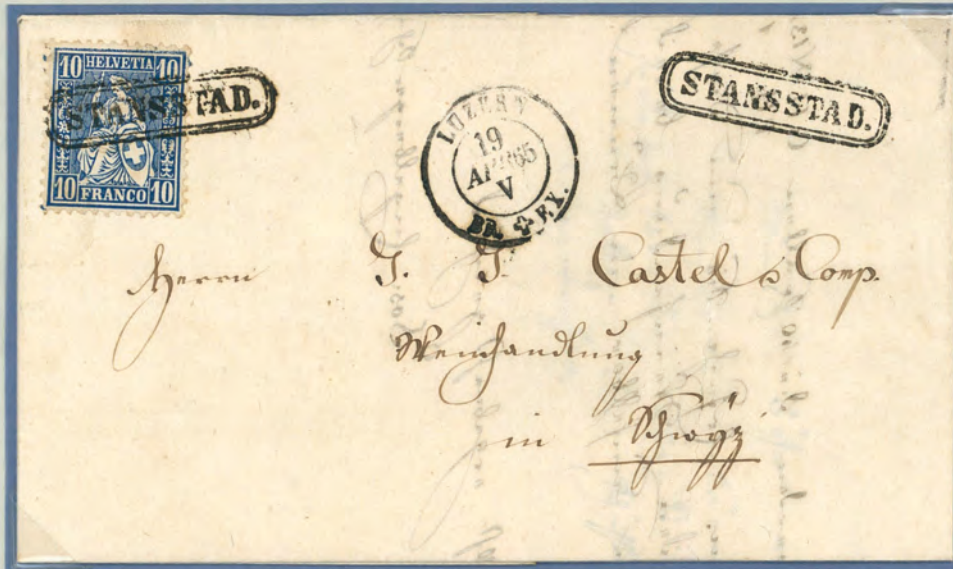 10 HELVETIA 10
10 FRANCO 10
STANSSTAD.
LUZERN
19
APR 65
V
BR. EX.
STANSSTAD.
Herrn J. J. Castel & Comp.
Weinhandlung
in Schwÿz